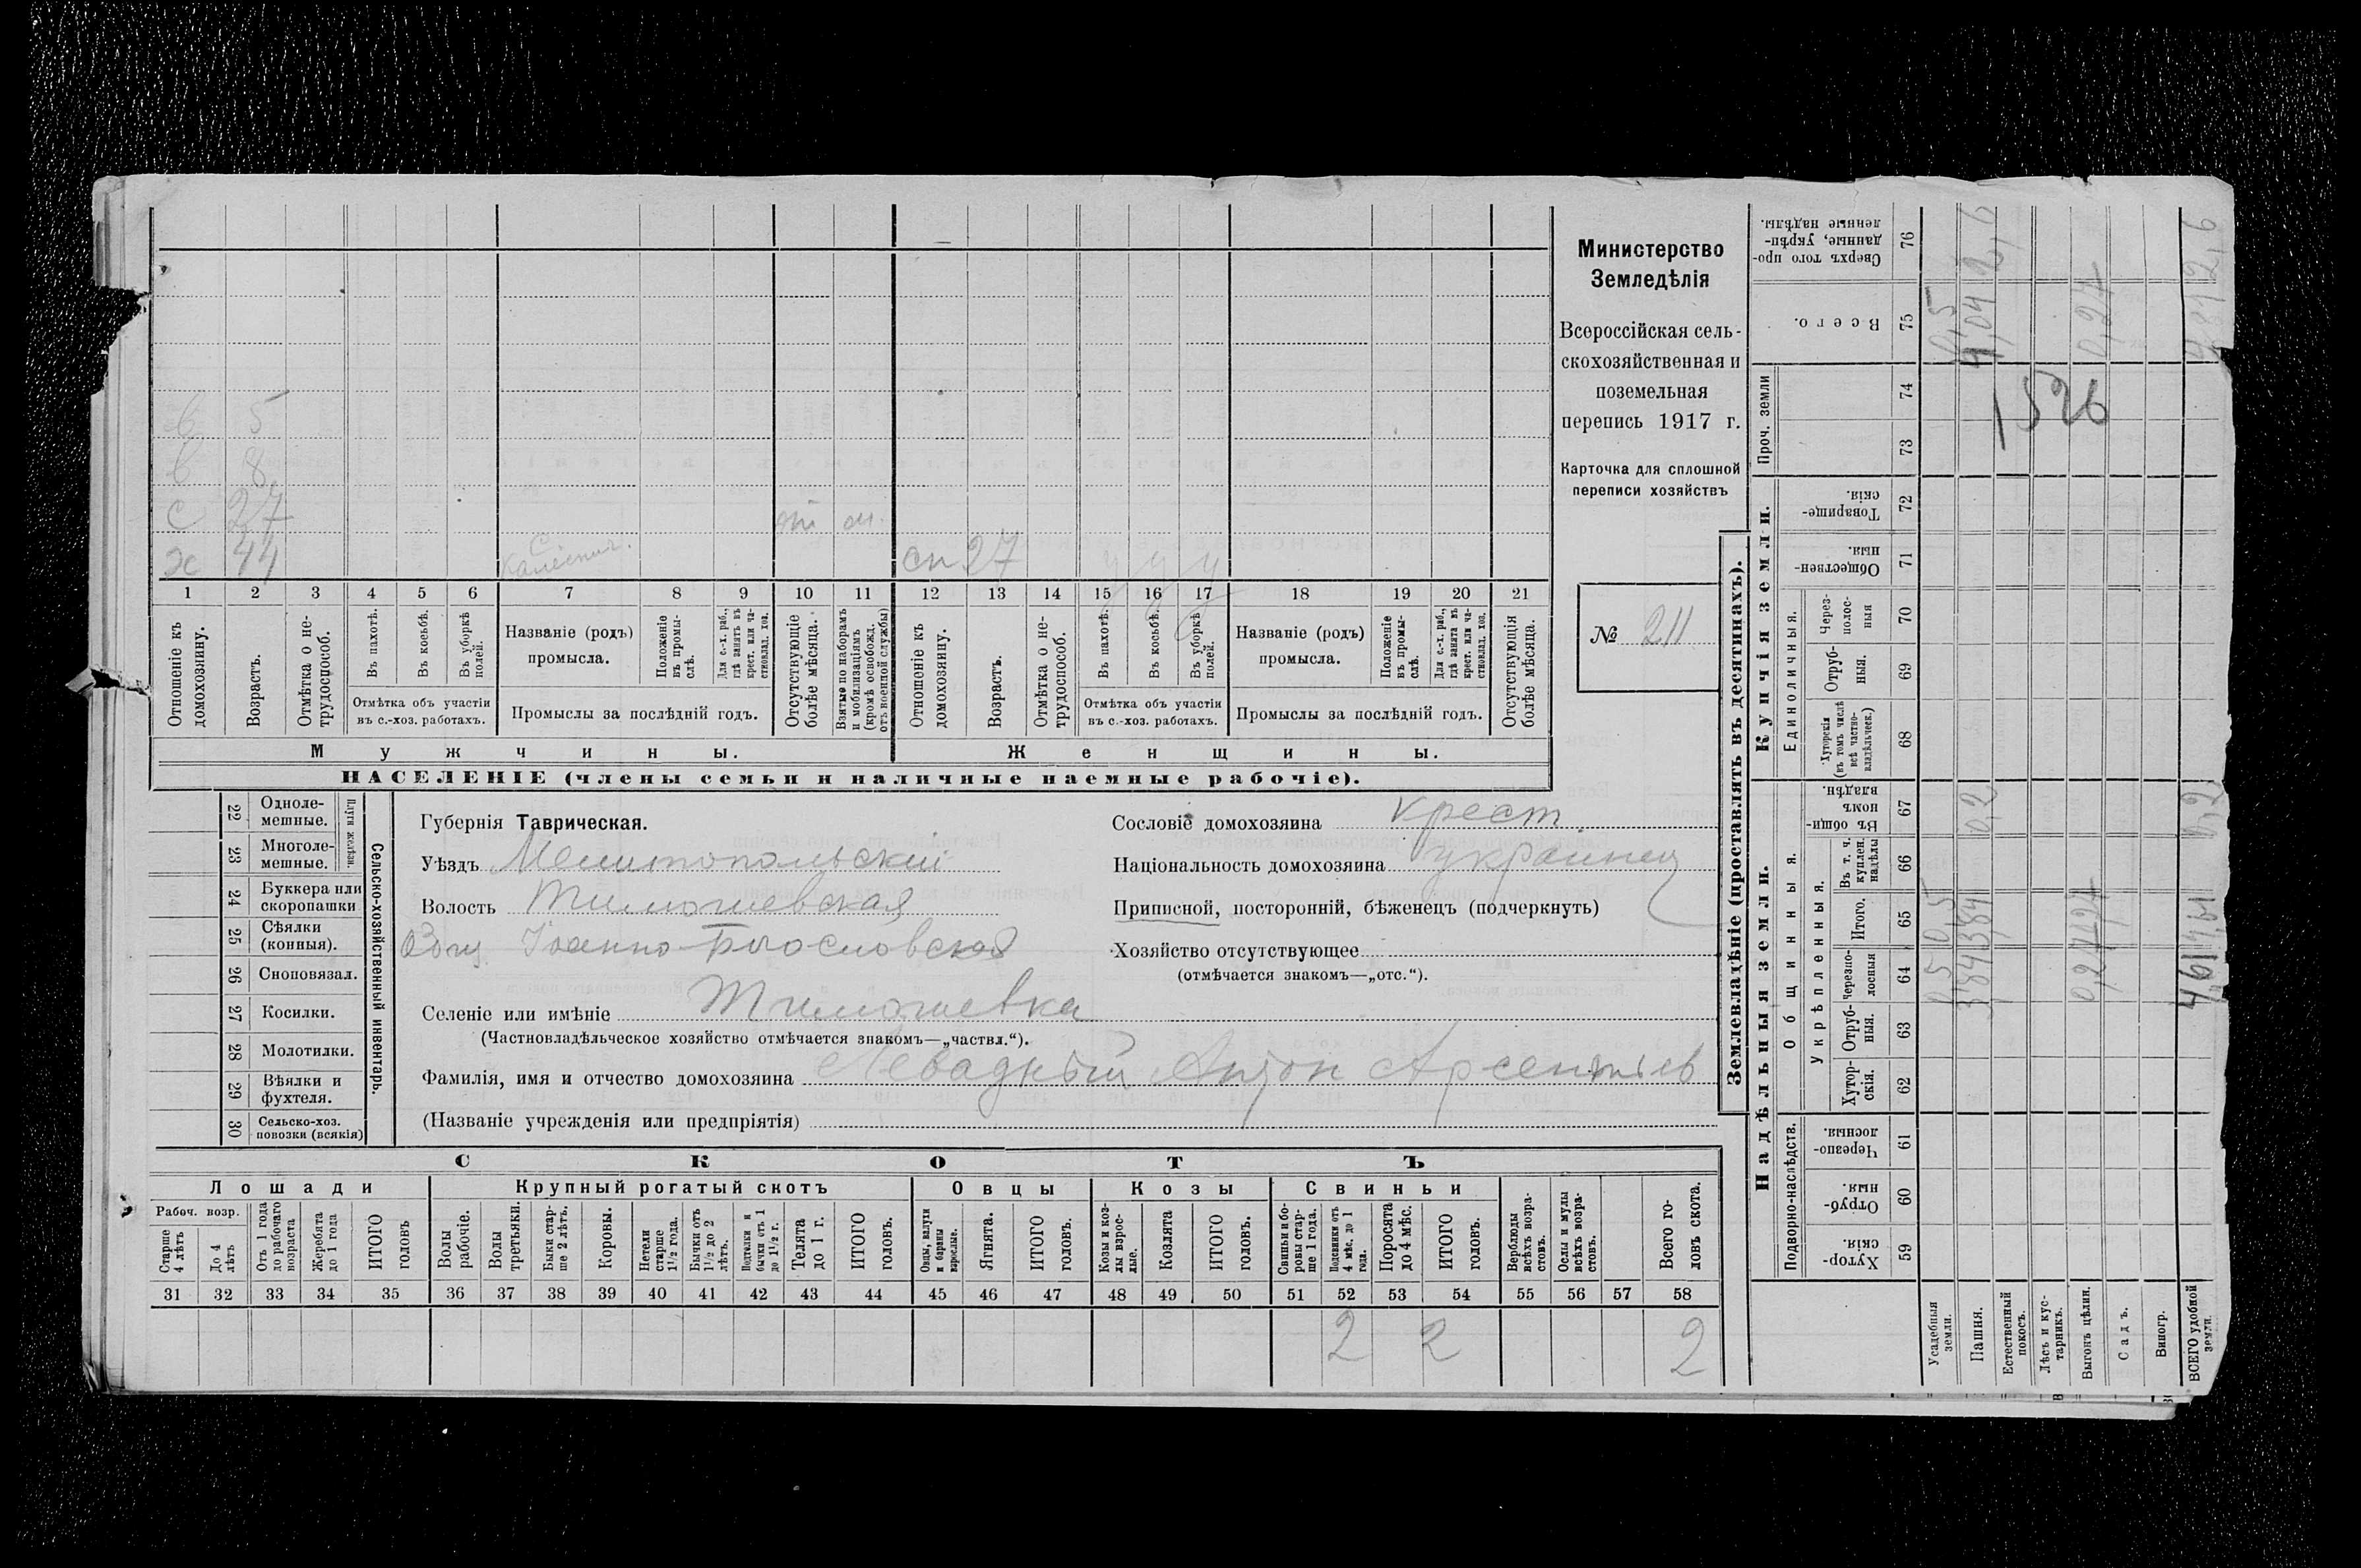 в 5
в 8
с 27
х 44
сн 27 у у у
1 2 3 4 5 6 7 8 9 10 11 12 13 14 15 16 17 18 19 20 21
Отношеніе къ домохозяину.
Возрастъ.
Отмѣтка о нетрудоспособ.
Въ пахотѣ.
Въ косьбѣ.
Въ уборкѣ полей.
Отмѣтка объ участіи
въ с.-хоз. работахъ.
Названіе (родъ)
промысла.
Положеніе въ промыслѣ.
Для с.-х. раб., гдѣ занятъ въ крест. или частновлад. хоз.
Промыслы за послѣдній годъ.
Отсутствующіе болѣе мѣсяца.
Взятые по наборамъ и мобилизаціямъ (кромѣ освобожд. отъ военной службы)
Отношеніе къ домохозяину.
Возрастъ.
Отмѣтка о нетрудоспособ.
Въ пахотѣ.
Въ косьбѣ.
Въ уборкѣ полей.
Отмѣтка объ участіи
въ с.-хоз. работахъ.
Названіе (родъ)
промысла.
Положеніе въ промыслѣ.
Для с.-х. раб., гдѣ занята въ крест. или частновлад. хоз.
Промыслы за послѣдній годъ.
Отсутствующія болѣе мѣсяца.
Мужчины.
Женщины.
НАСЕЛЕНІЕ (члены семьи и наличные наемные рабочіе).
Министерство
Земледѣлія
Всероссійская сель-
скохозяйственная и
поземельная
перепись 1917 г.
Карточка для сплошной
переписи хозяйствъ
№ 211
Сельско-хозяйственный инвентарь.
Плуги желѣзн.
22 Одноле-
мешные.
23 Многоле-
мешные.
24 Буккера или
скоропашки
25 Сѣялки
(конныя).
26 Сноповязал.
27 Косилки.
28 Молотилки.
29 Вѣялки и
фухтеля.
30 Сельско-хоз.
повозки (всякія)
Губернія Таврическая.
Уѣздъ Мелитопольскій
Волость Тимошевская
Общ. Іоанно-Богословская
Селеніе или имѣніе Тимошевка
(Частновладѣльческое хозяйство отмѣчается знакомъ—„частвл.“).
Фамилія, имя и отчество домохозяина Левадный Антон Арсентьев
(Названіе учрежденія или предпріятія)
Сословіе домохозяина крест.
Національность домохозяина украинец
Приписной, посторонній, бѣженецъ (подчеркнуть)
Хозяйство отсутствующее
(отмѣчается знакомъ—„отс.“).
СКОТЪ
Лошади
Рабоч. возр.
Старше 4 лѣтъ
До 4 лѣтъ
Отъ 1 года до рабочаго возраста
Жеребята до 1 года
ИТОГО головъ
Крупный рогатый скотъ
Волы рабочіе.
Волы третьяки.
Быки старше 2 лѣтъ.
Коровы.
Нетели старше 1½ года.
Бычки отъ 1½ до 2 лѣтъ.
Подтелки и бычки отъ 1 до 1½ г.
Телята до 1 г.
ИТОГО головъ.
Овцы
Овцы, валухи и бараны взрослые.
Ягнята.
ИТОГО головъ.
Козы
Козы и козлы взрослые.
Козлята
ИТОГО головъ.
Свиньи
Свиньи и боровы старше 1 года.
Подсвинки отъ 4 мѣс. до 1 года.
Поросята до 4 мѣс.
ИТОГО головъ.
Верблюды всѣхъ возрастовъ.
Ослы и мулы всѣхъ возрастовъ.
Всего головъ скота.
31 32 33 34 35 36 37 38 39 40 41 42 43 44 45 46 47 48 49 50 51 52 53 54 55 56 57 58
2 2 2
Землевладѣніе (проставлять въ десятинахъ).
Надѣльныя земли.
Купчія земли.
Проч. земли
Подворно-наслѣдств.
Общинныя.
Укрѣпленныя.
Единоличныя.
Хутор-
скія. 59
Отруб-
ныя. 60
Черезпо-
лосныя. 61
Хутор-
скія. 62
Отруб-
ныя. 63
Черезпо-
лосныя 64
Итого. 65
Въ т. ч. куплен. надѣлы 66
Въ общинномъ владѣн. 67
Хуторскія (въ томъ числѣ всѣ частновладѣльческ.) 68
Отруб-
ныя. 69
Через-
полос-
ныя 70
Обществен-
ныя. 71
Товарище-
скія. 72
73
74
Всего. 75
Сверхъ того про-
данные, укрѣп-
ленные надѣлы. 76
Усадебныя земли. 0,5 0,5 0,5
Пашня. 3,84 3,84 0,2 4,04 2,6
Естественный покосъ.
Лѣсъ и кустарникъ.
Выгонъ цѣлин. 0,24
Садъ.
Виногр.
ВСЕГО удобной земли. 0,2
1526